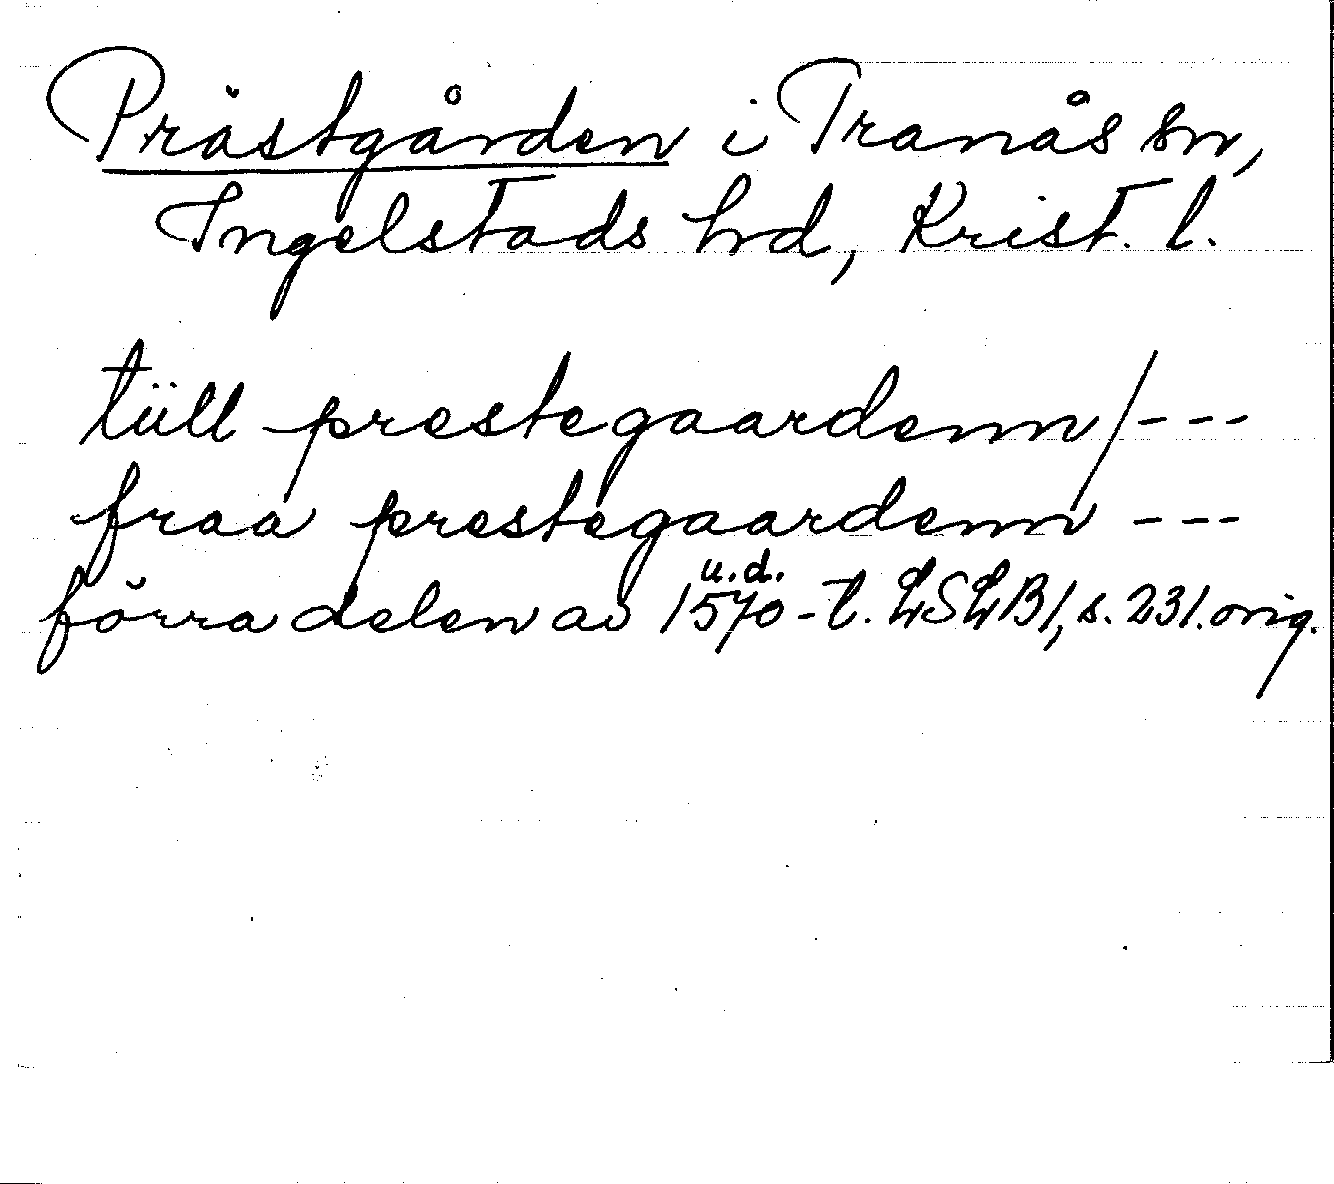 Prästgården i Tranås sn,
Ingelstads hrd, Krist. l.
tüll prestegaardenn / ---
fraa prestegaardenn ---
u.d.
förra delen av 1570-t. LSLB1, s. 231. orig.